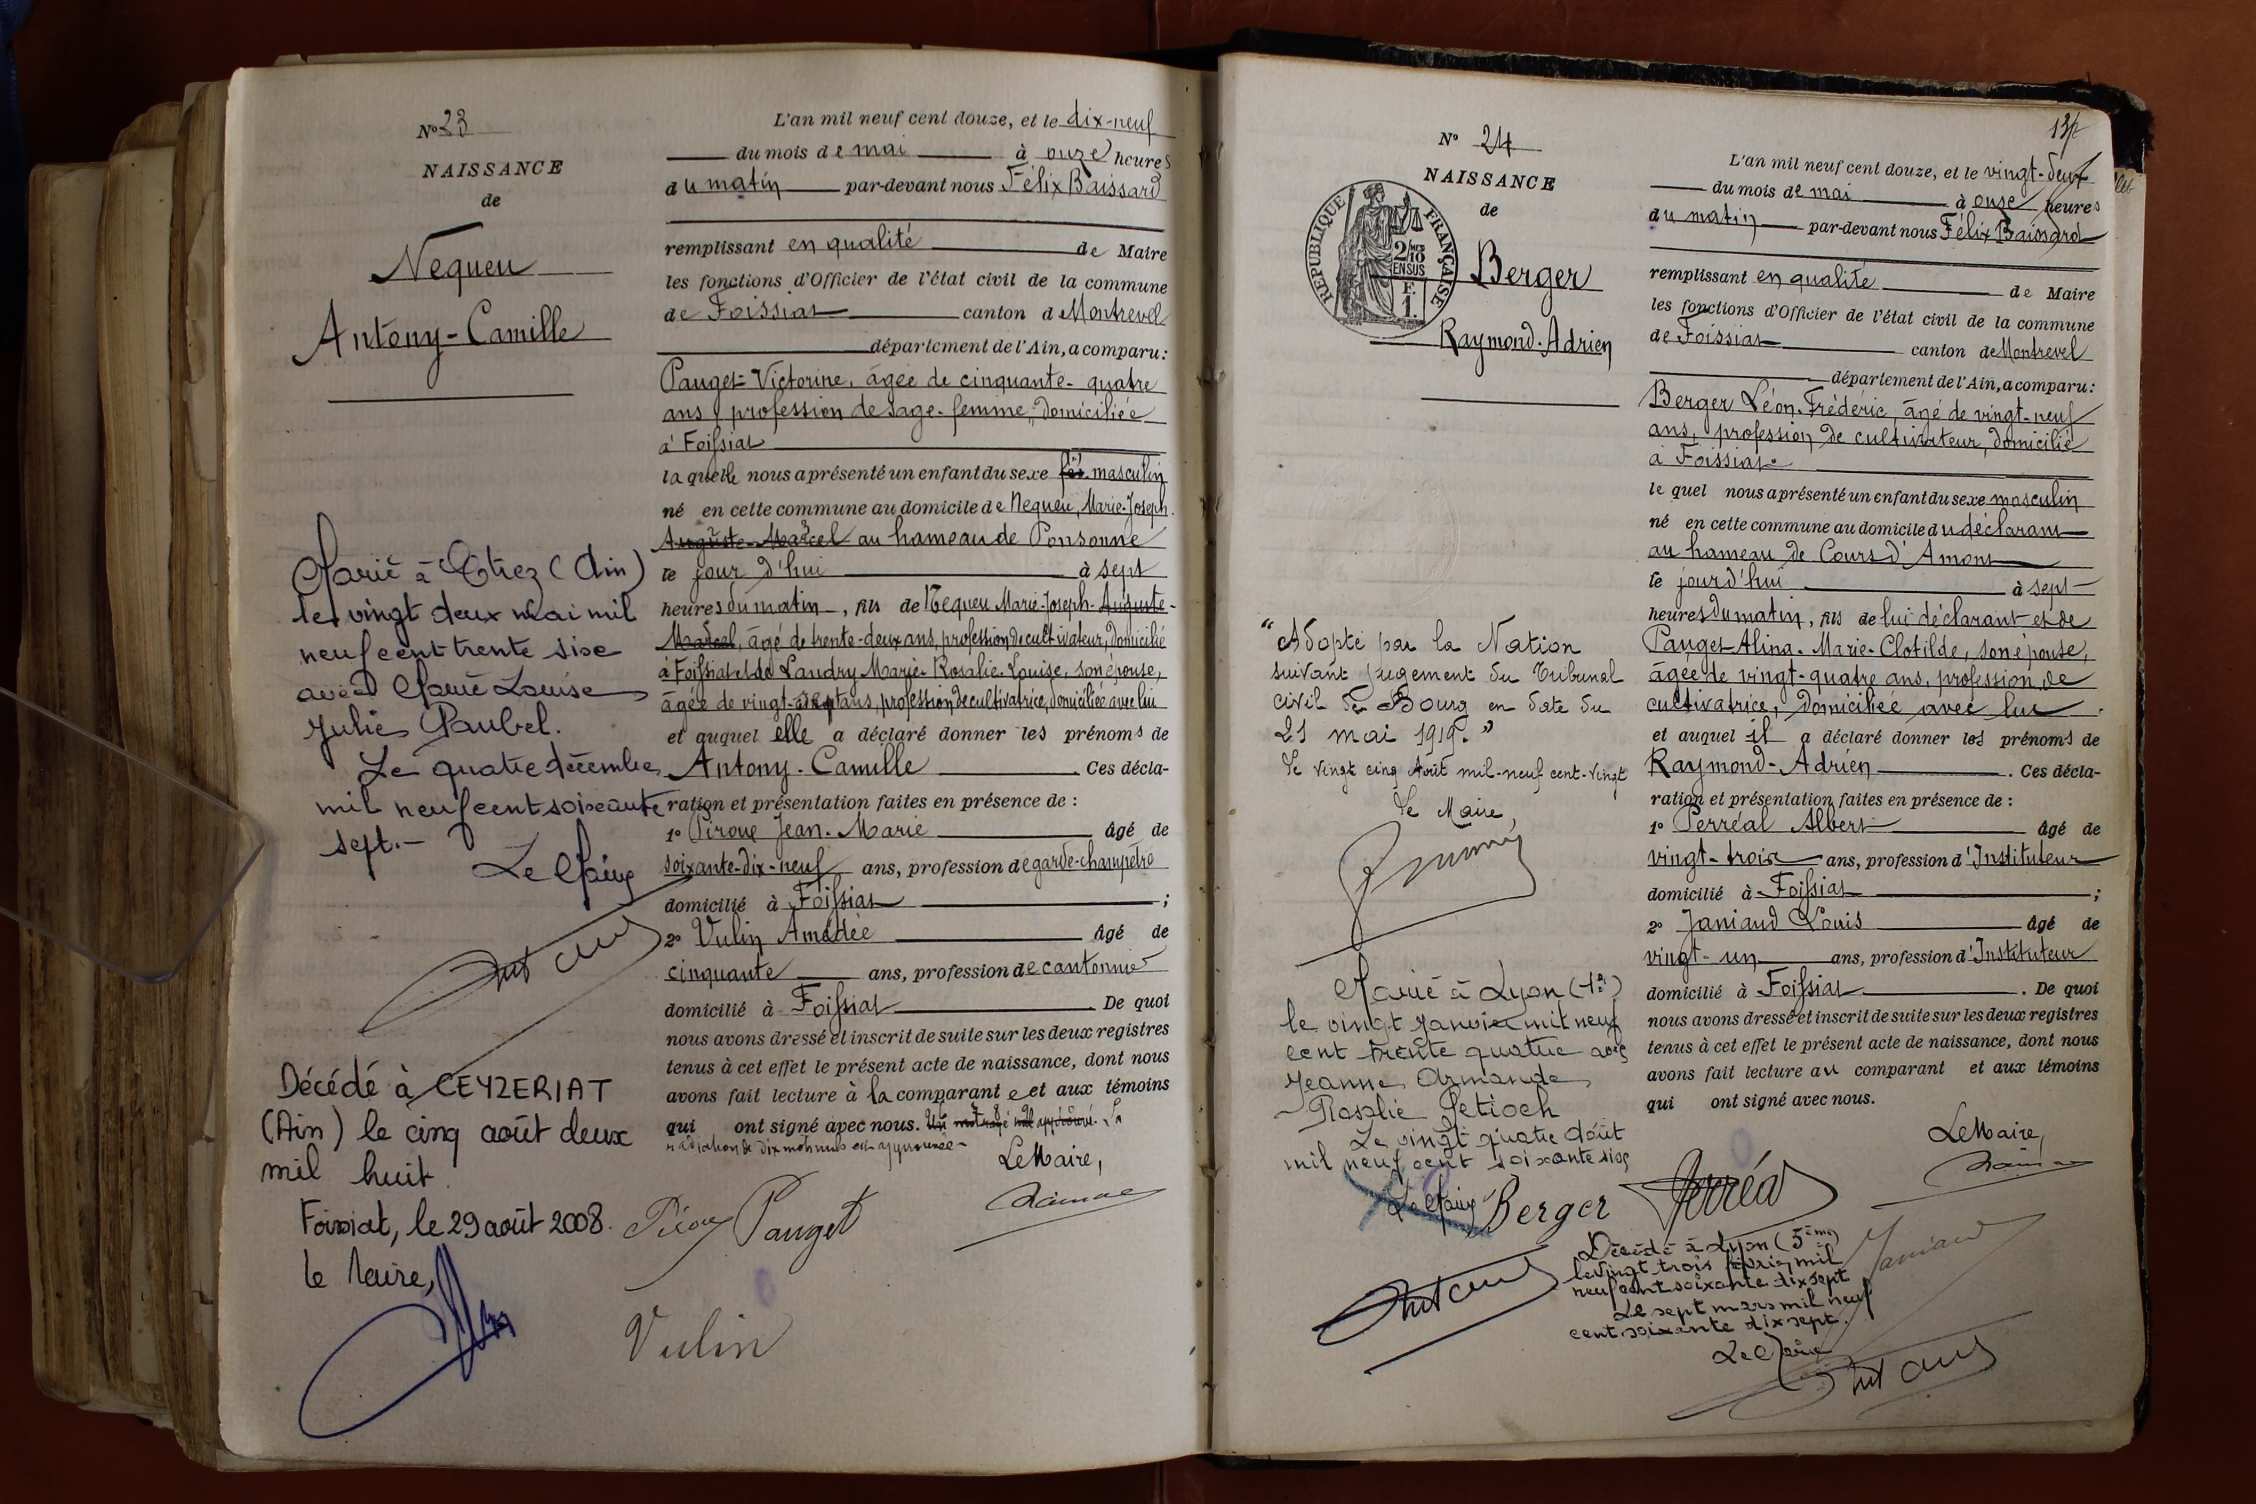 N° 23
NAISSANCE
de
Nequeu
Antony-Camille
Marié à Attignat (Ain)
le vingt deux mai mil
neuf cent trente six
avec Marie Louise
Julie Paubel.
Le quatre décembre
mil neuf cent soixante
sept.-
Le Maire
Décédé à CEYZERIAT
(Ain) le cinq août deux
mil huit.
Foissiat, le 29 août 2008.
le Maire,
L'an mil neuf cent douze, et le dix-neuf
du mois de mai à onze heures
du matin par-devant nous Félix Baissard
remplissant en qualité de Maire
les fonctions d'Officier de l'état civil de la commune
de Foissiat canton de Montrevel
département de l'Ain, a comparu:
Pauget Victorine, âgée de cinquante-quatre
ans, profession de sage-femme, domiciliée
à Foissiat
laquelle nous a présenté un enfant du sexe masculin
né en cette commune au domicile de Nequeu, Marie-Joseph
Auguste-Marcel au hameau de Ponsonne
le jour d'hui à sept
heures du matin, fils de Nequeu Marie-Joseph-Auguste-
Marcel, âgé de trente-deux ans, profession de cultivateur, domicilié
à Foissiat et de Landry Marie-Rosalie-Louise, son épouse,
âgée de vingt-sept ans, profession de cultivatrice, domiciliée avec lui
et auquel elle a déclaré donner les prénoms de
Antony-Camille Ces décla-
ration et présentation faites en présence de :
1° Piroux Jean-Marie âgé de
soixante-dix-neuf ans, profession de garde-champêtre
domicilié à Foissiat ;
2° Vulin Amédée âgé de
cinquante ans, profession de cantonnier
domicilié à Foissiat De quoi
nous avons dressé et inscrit de suite sur les deux registres
tenus à cet effet le présent acte de naissance, dont nous
avons fait lecture à la comparante et aux témoins
qui ont signé avec nous. Un mot rayé nul approuvé. La
radiation de dix mots nuls est approuvée-
Le Maire,
Piroux Pauget
Vulin
137
N° 24
NAISSANCE
de
RÉPUBLIQUE FRANÇAISE
2/10
EN SUS
F.
1.
Berger
Raymond-Adrien
"Adopté par la Nation
suivant jugement du Tribunal
civil de Bourg en date du
21 mai 1919."
Le vingt cinq Août mil-neuf cent-vingt
Le Maire,
Marié à Lyon (1er)
le vingt janvier mil neuf
cent trente quatre avec
Jeanne Armande
Rosalie Petioch
Le vingt quatre août
mil neuf cent soixante six
Le Maire
L'an mil neuf cent douze, et le vingt-deux
du mois de mai à onze heures
du matin par-devant nous Félix Baissard
remplissant en qualité de Maire
les fonctions d'Officier de l'état civil de la commune
de Foissiat canton de Montrevel
département de l'Ain, a comparu:
Berger Léon-Frédéric, âgé de vingt-neuf
ans, profession de cultivateur, domicilié
à Foissiat
lequel nous a présenté un enfant du sexe masculin
né en cette commune au domicile du déclarant
au hameau de Cours d'Amont
le jour d'hui à sept
heures du matin, fils de lui déclarant et de
Pauget Alina-Marie-Clotilde, son épouse,
âgée de vingt-quatre ans, profession de
cultivatrice, domiciliée avec lui.
et auquel il a déclaré donner les prénoms de
Raymond-Adrien . Ces décla-
ration et présentation faites en présence de :
1° Perréal Albert âgé de
vingt-trois ans, profession d'Instituteur
domicilié à Foissiat ;
2° Janiaud Louis âgé de
vingt-un ans, profession d'Instituteur
domicilié à Foissiat . De quoi
nous avons dressé et inscrit de suite sur les deux registres
tenus à cet effet le présent acte de naissance, dont nous
avons fait lecture au comparant et aux témoins
qui ont signé avec nous.
Le Maire,
Berger Perréal
Janiaud
Décédé à Lyon (5ème)
le vingt trois février mil
neuf cent soixante dix sept
Le sept mars mil neuf
cent soixante dix sept.
Le Maire